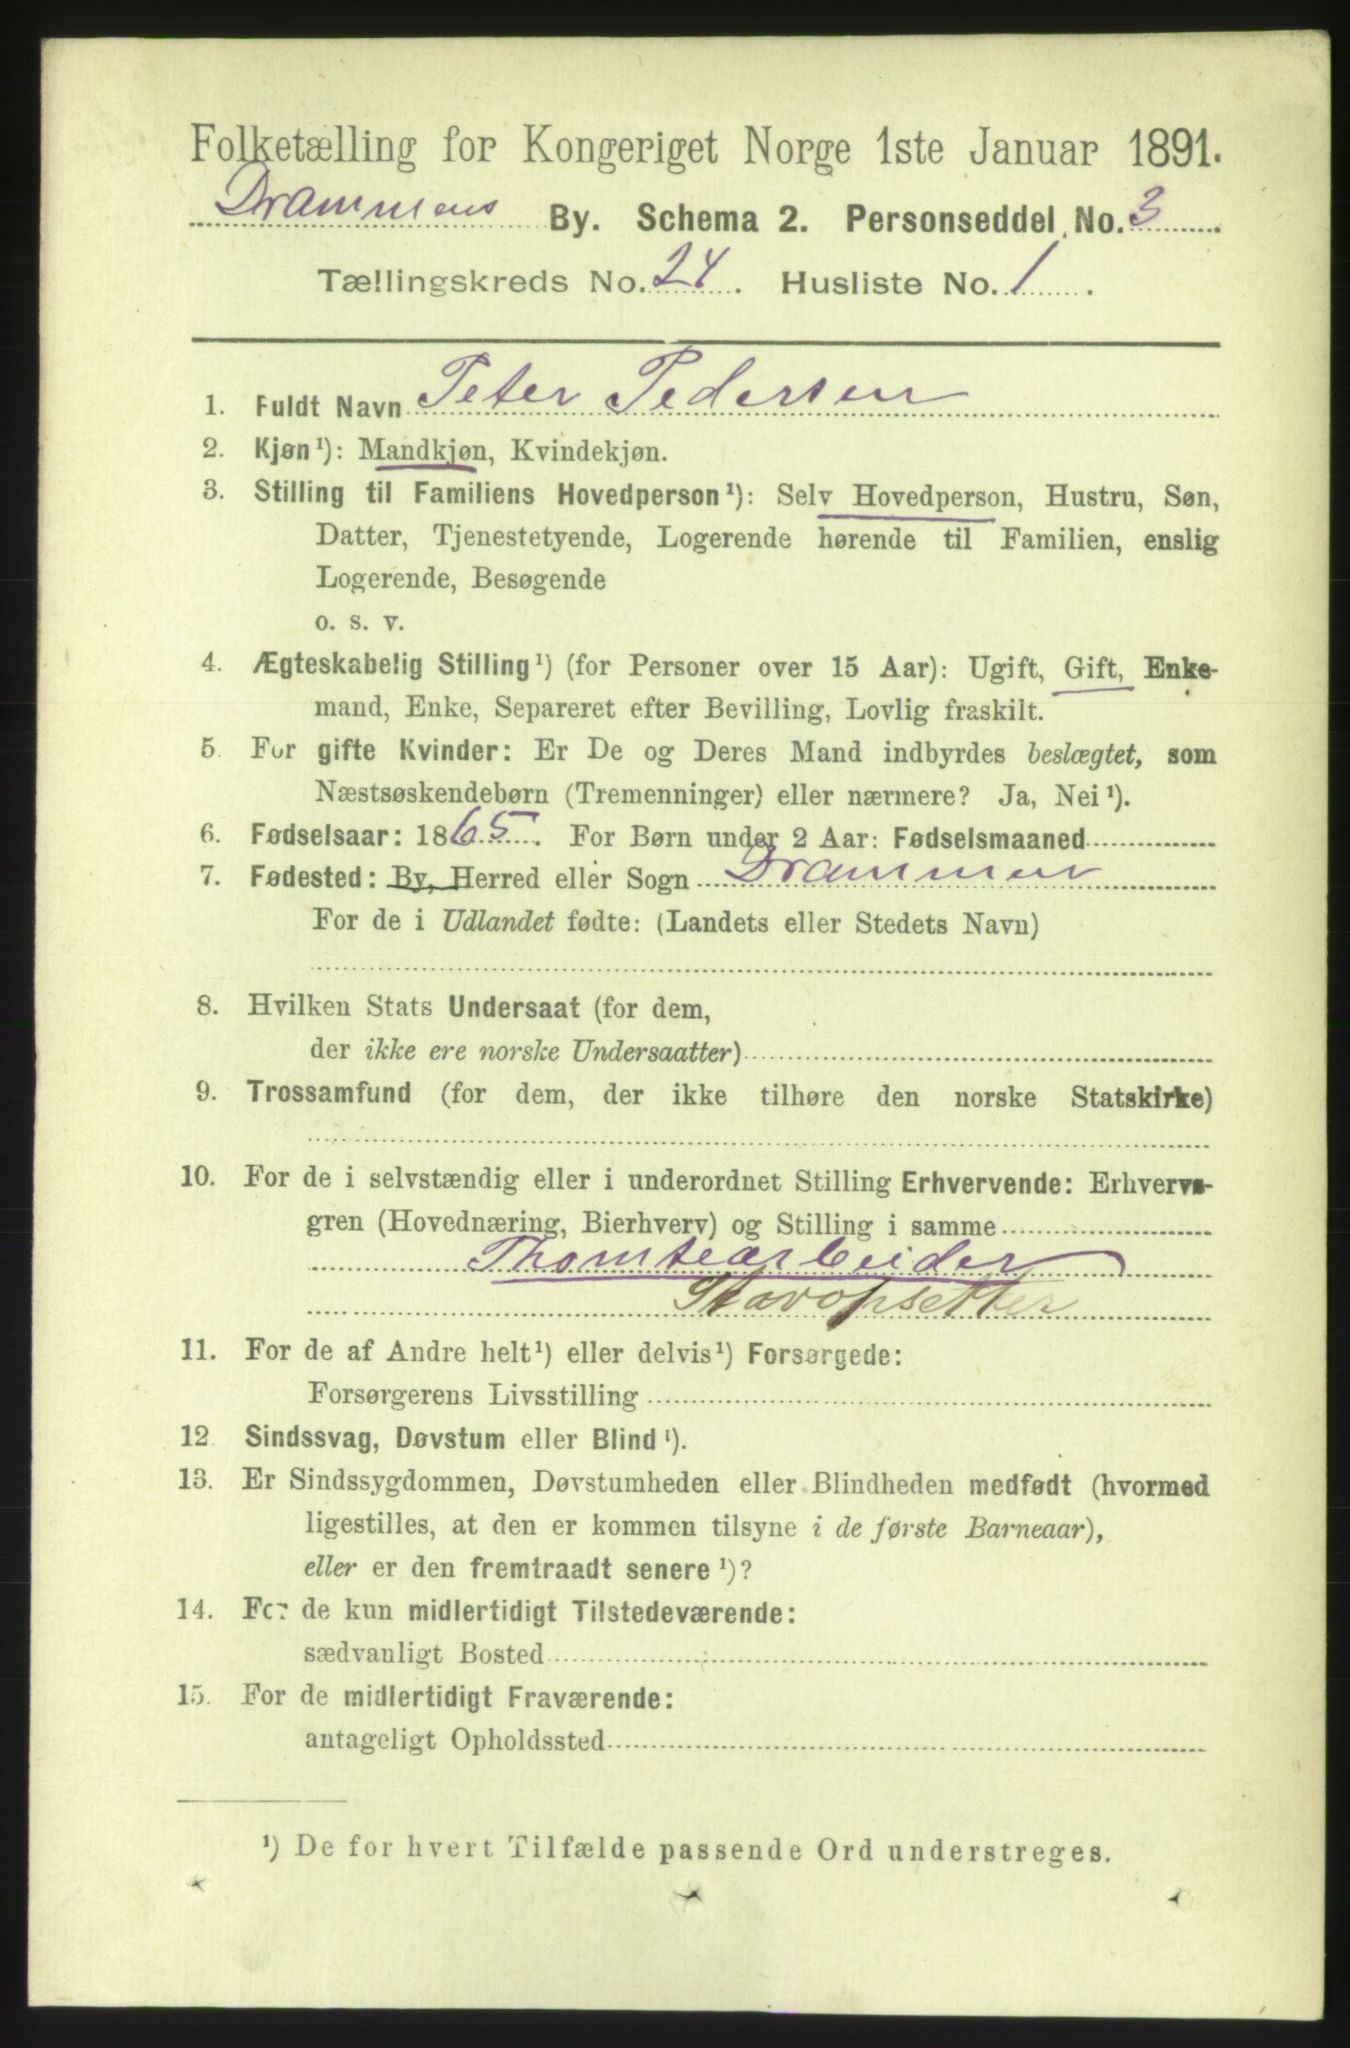 Folketælling for Kongeriget Norge 1ste Januar 1891.
Drammens By. Schema 2. Personseddel No. 3.
Tællingskreds No. 24. Husliste No. 1.
1. Fuldt Navn Peter Pedersen
2. Kjøn¹): Mandkjøn, Kvindekjøn.
3. Stilling til Familiens Hovedperson¹): Selv Hovedperson, Hustru, Søn,
Datter, Tjenestetyende, Logerende hørende til Familien, enslig
Logerende, Besøgende
o. s. v.
4. Ægteskabelig Stilling¹) (for Personer over 15 Aar): Ugift, Gift, Enke-
mand, Enke, Separeret efter Bevilling, Lovlig fraskilt.
5. For gifte Kvinder: Er De og Deres Mand indbyrdes beslægtet, som
Næstsøskendebørn (Tremenninger) eller nærmere? Ja, Nei¹).
6. Fødselsaar: 1865. For Børn under 2 Aar: Fødselsmaaned
7. Fødested: By, Herred eller Sogn Drammen
For de i Udlandet fødte: (Landets eller Stedets Navn)
8. Hvilken Stats Undersaat (for dem,
der ikke ere norske Undersaatter)
9. Trossamfund (for dem, der ikke tilhøre den norske Statskirke)
10. For de i selvstændig eller i underordnet Stilling Erhvervende: Erhvervs-
gren (Hovednæring, Bierhverv) og Stilling i samme
Thomtearbeider
Stavopsetter
11. For de af Andre helt¹) eller delvis¹) Forsørgede:
Forsørgerens Livsstilling
12 Sindssvag, Døvstum eller Blind¹).
13. Er Sindssygdommen, Døvstumheden eller Blindheden medfødt (hvormed
ligestilles, at den er kommen tilsyne i de første Barneaar),
eller er den fremtraadt senere¹)?
14. For de kun midlertidigt Tilstedeværende:
sædvanligt Bosted
15. For de midlertidigt Fraværende:
antageligt Opholdssted
¹) De for hvert Tilfælde passende Ord understreges.